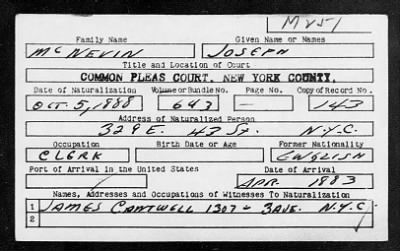 M251
Family Name Given Name or Names
McNEVIN JOSEPH
Title and Location of Court
COMMON PLEAS COURT, NEW YORK COUNTY.
Date of Naturalization Volume or Bundle No. Page No. Copy of Record No.
OCT. 5, 1888 643 — 143
Address of Naturalized Person
329 E. 43 St. N.Y.C.
Occupation Birth Date or Age Former Nationality
CLERK ENGLISH
Port of Arrival in the United States Date of Arrival
APR. 1883
Names, Addresses and Occupations of Witnesses To Naturalization
1 JAMES CANTWELL 1307 - 3 AVE. N.Y.C.
2